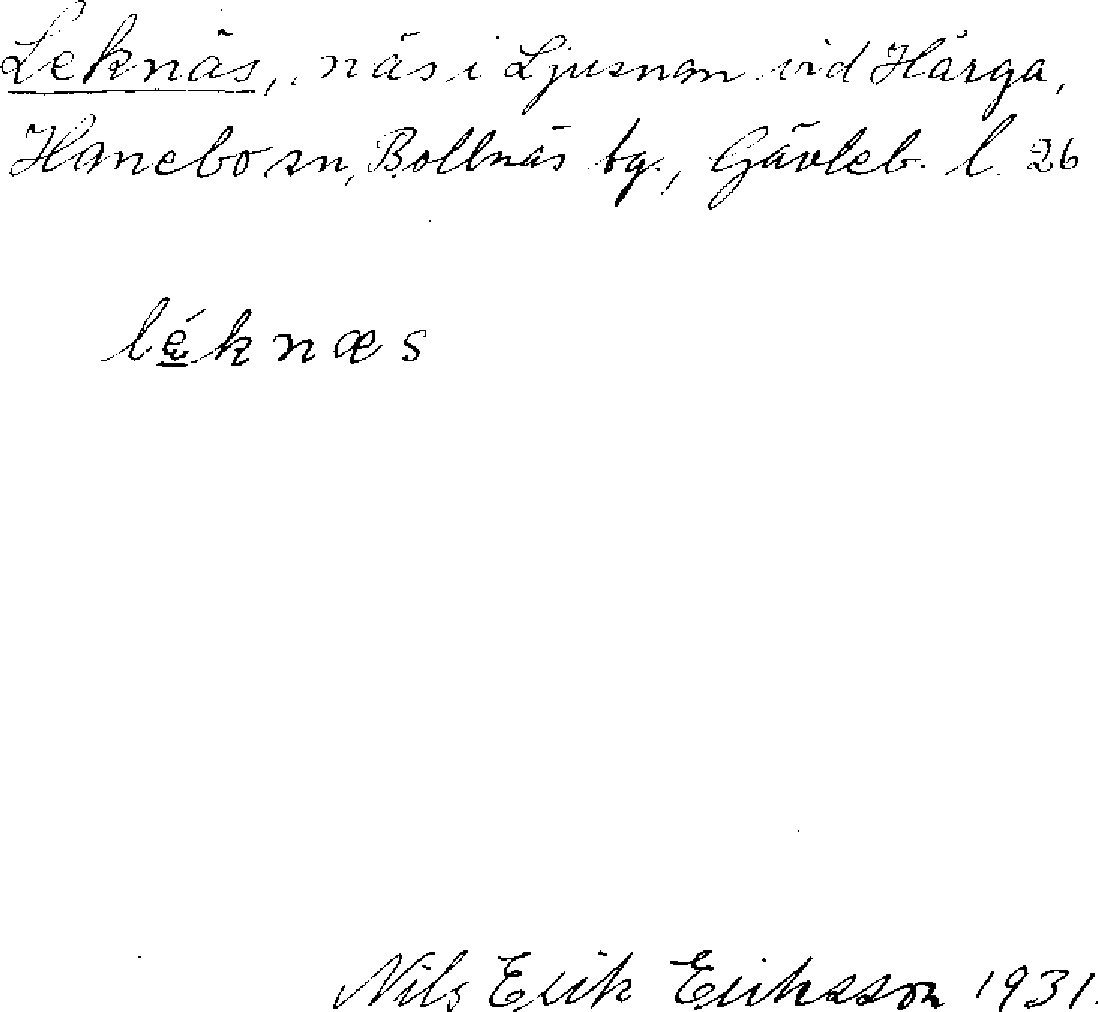 Leknäs, näs i Ljusnan vid Hårga,
Hanebo sn, Bollnäs tg., Gävleb. l. 26
lé̲knæs
Nils Erik Eriksson 1931.